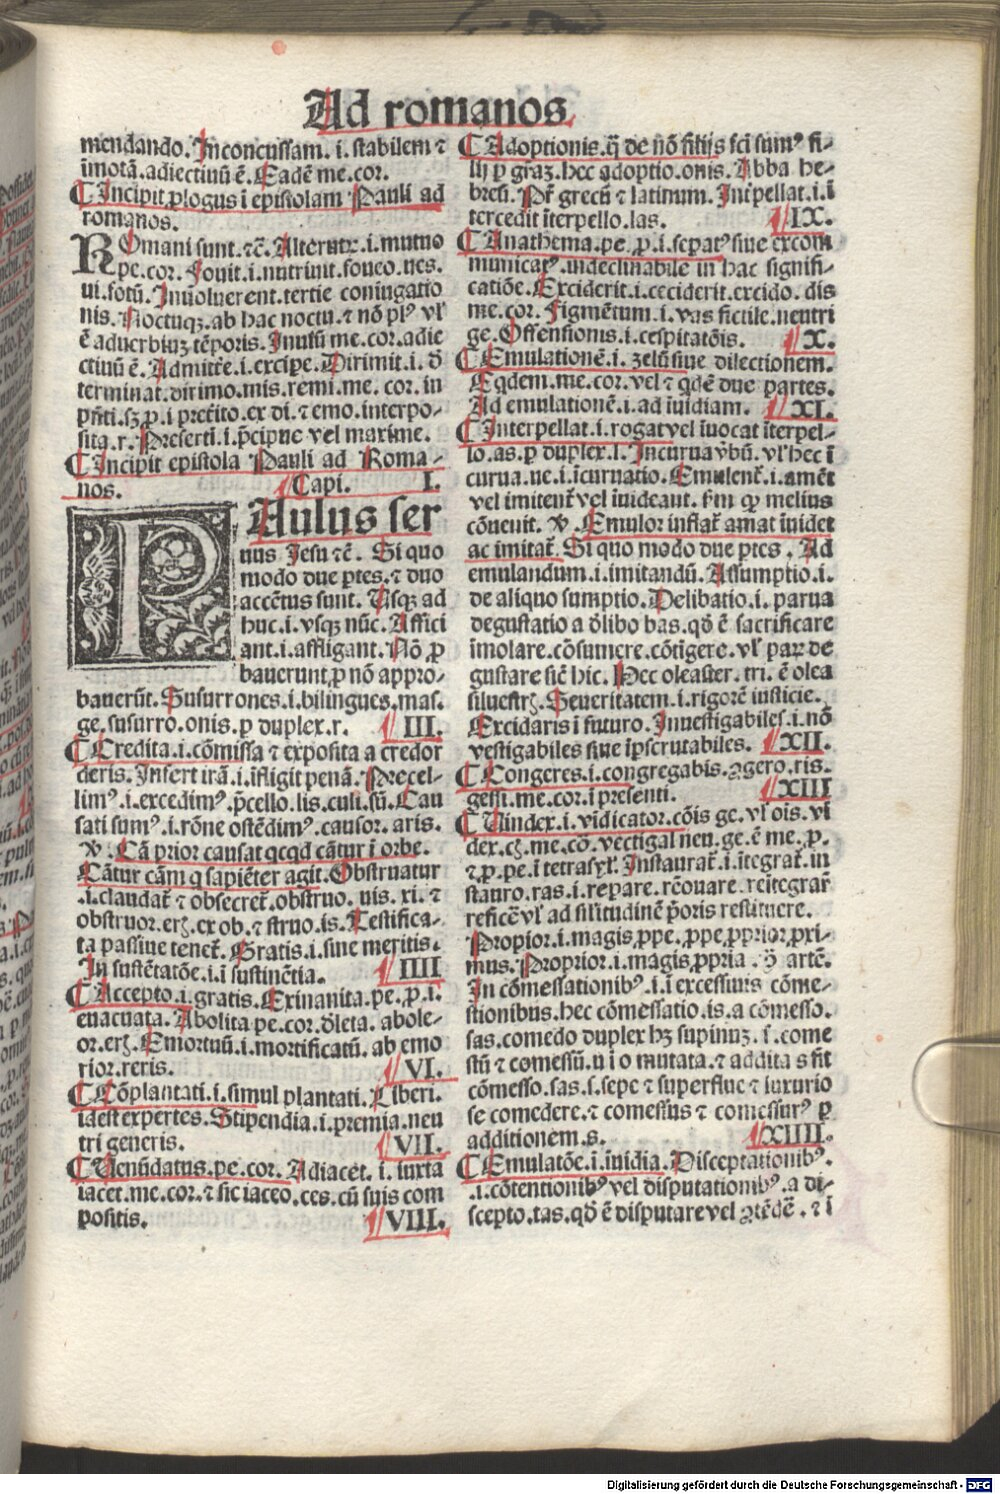 Ad romanos.
mendando. Inconcussam.i.stabilem ⁊
īmotā.adiectiuū ē. Eadē me.cor.
¶ Incipit ꝓlogus ī epistolam Pauli ad
romanos.
ROmani sunt.⁊c̄. Alterutr̄.i.mutuo
pe.cor. Fouit.i.nutriuit.foueo.ues.
ui.fotū. Inuoluerent.tertie coniugatio
nis. Noctuqꝫ.ab hac noctu.⁊ nō plꝰ vl̓
ē aduerbiuꝫ tēporis. Inuisū me.cor.adie
ctiuū ē. Admitt̓e.i.excipe. Dirimit.i.d̓
terminat.dirimo.mis.remi.me.cor.in
pn̄ti.sꝫ ꝓ.i p̄reīto.ex di.⁊ emo.interpo-
sita.r. Preserti.i.p̄cipue vel maxime.
¶ Incipit epistola Pauli ad Roma-
nos. ¶ Capi. I.
PAulus ser
uus Jesu ⁊c̄. Si quo
modo due ptes.⁊ duo
accētus sunt. Usqꝫ ad
huc.i.vsqꝫ nūc. Affici
ant.i.affligant. Nō ꝓ
bauerunt,ꝓ nō appro-
bauerūt. Susurrones.i.bilingues.mas.
ge.susurro.onis.ꝑ duplex.r. ¶ III.
¶ Credita.i.cōmissa ⁊ exposita a credor
deris. Infert irā.i.īfligit penā. Precel-
limꝰ.i.excedimꝰ.p̄cello.lis.culi.sū. Cau
sati sumꝰ.i.rōne ostēdimꝰ.causor.aris.
V̓. Cā prior causat qcqd cātur ī orbe.
Cātur cām q sapiēter agit. Obstruatur
.i.claudat̄ ⁊ obsecret̄.obstruo.uis.xi.⁊
obstruor.erꝭ.ex ob.⁊ struo.is. Testifica-
ta passiue tenet̄. Gratis.i.sine meritis.
In sustētatōe.i.ī sustinētia. ¶ IIII
¶ Accepto.i.gratis. Exinanita.pe.ꝓ.i.
euacuata. Abolita pe.cor.d̓leta.abole-
or.erꝭ. Emortuū.i.mortificatū.ab emo
rior.reris. ¶ VI.
¶ Cōplantati.i.simul plantati. Liberi.
idest expertes. Stipendia.i.premia.neu
tri generis. ¶ VII.
¶ Uenūdatus.pe.cor. Adiacet.i.iuxta
iacet.me.cor.⁊ sic iaceo.ces.cū suis com
positis. ¶ VIII.
¶ Adoptionis.q̄ de nō filijs fci sumꝰ fi-
lij ꝑ grāꝫ.hec adoptio.onis. Abba he-
breū. Pr̄ grecū ⁊ latinum. Int̓pellat.i.ī
tercedit īterpello.las. ¶ IX.
¶ Anathema.pe.ꝓ.i.sepatꝰ siue excom
municatꝰ.indeclinabile in hac signifi-
catiōe. Exciderit.i.ceciderit.excido.dis
me.cor. Figmētum.i.vas fictile.neutri
ge. Offensionis.i.cespitatōis. ¶ X.
¶ Emulationē.i.zelū siue dilectionem.
Eqdem.me.cor.vel ⁊ qdē due partes.
Ad emulationē.i.ad īuidiam. ¶ XI.
¶ Interpellat.i.rogat vel īuocat īterpel-
lo.as.ꝑ duplex.l. Incurua v̓bū.vl̓ hec ī
curua.ue.i.īcuruatio. Emulent̄.i.ament̄
vel imitent̄ vel īuideant. fm qꝙ melius
cōuenit. V̓. Emulor inflat̄ amat īuidet
ac imitat̄. Si quo modo due ptes. Ad
emulandum.i.imitandū. Assumptio.i.
de aliquo sumptio. Delibatio.i.parua
degustatio a d̓libo bas.qd̓ ē sacrificare
īmolare.cōsumere.cōtigere.vl̓ paꝝ de
gustare sic̄ hic. Hec oleaster.tri.ē olea
siluestrꝭ. Seueritatem.i.rigorē iusticie.
Excidaris ī futuro. Inuestigabiles.i.nō
vestigabiles siue īpscrutabiles. ¶ XII.
¶ Congeres.i.congregabis.ꝯgero.ris.
gessi.me.cor.ī presenti. ¶ XIII
¶ Uindex.i.vidicator.cōis ge.vl̓ ois.vī
dex.cꝭ.me.co. vectigal neu.ge.ē me.ꝓ.
⁊ ꝓ.pe.ī tetrasyl̓. Instaurat̄.i.ītegrat̄.in
stauro.ras.i.repare.rēouare.reītegrar̄
reficē vl̓ ad sil̓itudinē p̄oris restituere.
Propior.i.magis ꝓpe.ꝓpe ꝓprior ꝓxi-
mus. Proprior.i.magis ꝓpria. V̓ artē.
In cōmessationibꝰ.i.ī excessiuis cōme-
stionibus.hec cōmessatio.is.a cōmesso.
sas.comedo duplex hꝫ supinuꝫ.s.come
stū ⁊ comessū.u ī o mutata.⁊ addita s fit
cōmesso.sas.i.sepe ⁊ superflue ⁊ luxurio
se comedere.⁊ comessus ⁊ comessurꝰ ꝑ
additionem.s. ¶ XIIII.
¶ Emulatōe.i.inidia. Disceptationibꝰ.
.i.cōtentionibꝰ vel disputationibꝰ.a di-
scepto.tas.qd̓ ē disputare vel ꝯtēdē̄.⁊ ī
Digitalisierung gefördert durch die Deutsche Forschungsgemeinschaft - DFG